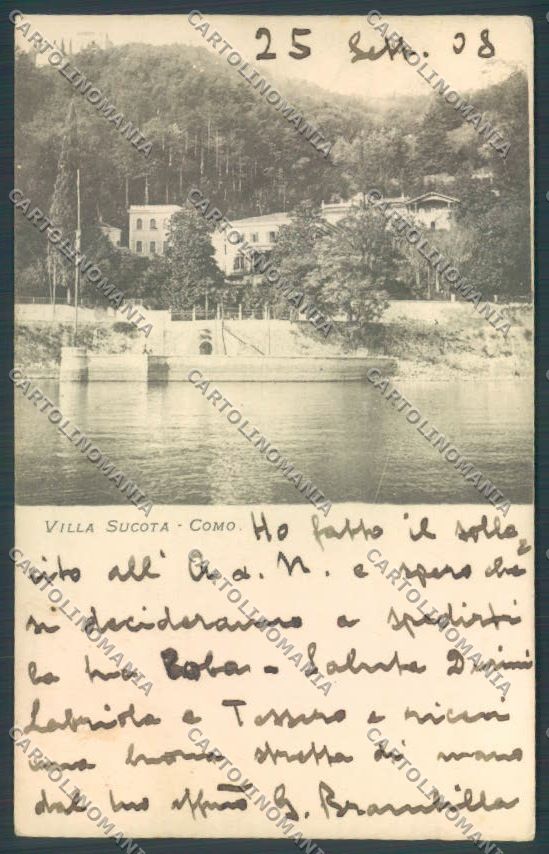 25 Sett. 08
VILLA SUCOTA - COMO.
Ho fatto il solle
cito all' A. d. N. e spero che
si decideranno a spedirti
la tua Roba - Saluta Durini
Labriola e Tessero e ricevi
una buona stretta di mano
dal tuo affmo G. Brambilla
CARTOLINOMANIA